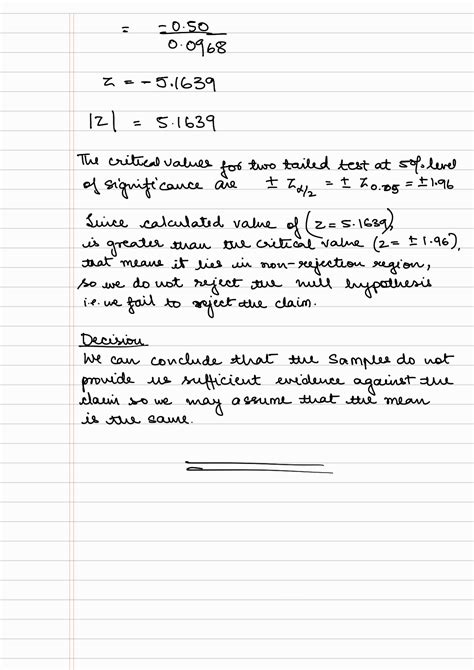 = -0.50
0.0968
z = -5.1639
|z| = 5.1639
The critical values for two tailed test at 5% level
of significance are ± z α/2 = ± z 0.05 = ±1.96
Since calculated value of (z = 5.1639)
is greater than the critical value (z = ± 1.96),
that means it lies in non-rejection region,
so we do not reject the null hypothesis
i.e. we fail to reject the claim.
Decision
We can conclude that the samples do not
provide us sufficient evidence against the
claim so we may assume that the mean
is the same.